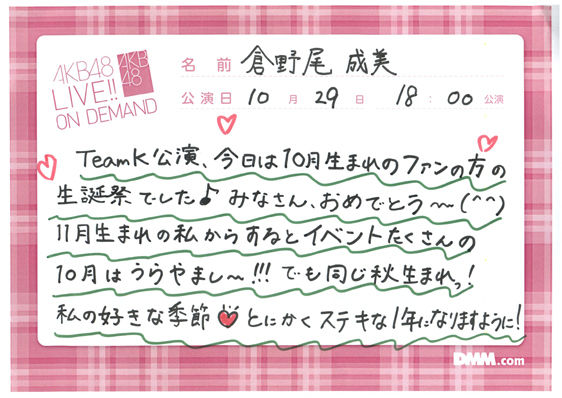 AKB48
LIVE!!
ON DEMAND
AKB
48
名前 倉野尾 成美
公演日 10月29日 18:00公演
TeamK公演、今日は10月生まれのファンの方の
生誕祭でした♪みなさん、おめでとう〜(^^)
11月生まれの私からするとイベントたくさんの
10月はうらやまし〜!!!でも同じ秋生まれっ!
私の好きな季節♥とにかくステキな1年になりますように!
DMM.com